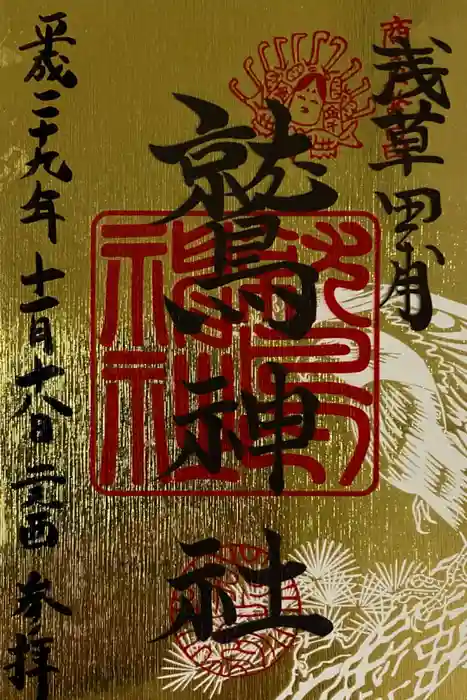 浅草田甫
鷲神社
平成二十九年十一月十八日二之酉参拝